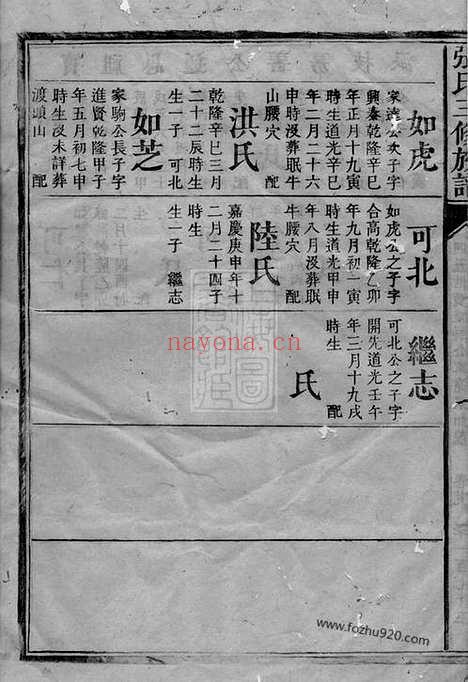 張氏三修族譜
如虎
家達公次子字
興秦乾隆辛巳
年正月十九寅
時生道光辛巳
年二月二十六
申時沒葬眠牛
山腰穴 配
洪氏
乾隆辛巳三月
二十二辰時生
生一子 可北
如芝
家駒公長子字
進賢乾隆甲子
年五月初七申
時生沒未詳葬
渡頭山 配
可北
如虎公之子字
合高乾隆乙卯
年九月初一寅
時生道光甲申
年八月沒葬眠
牛腰穴 配
陸氏
嘉慶庚申年十
二月二十四子
時生
生一子 繼志
繼志
可北公之子字
開先道光壬午
年三月十九戌
時生 配
氏
nayona.cn
www.fozhu920.com